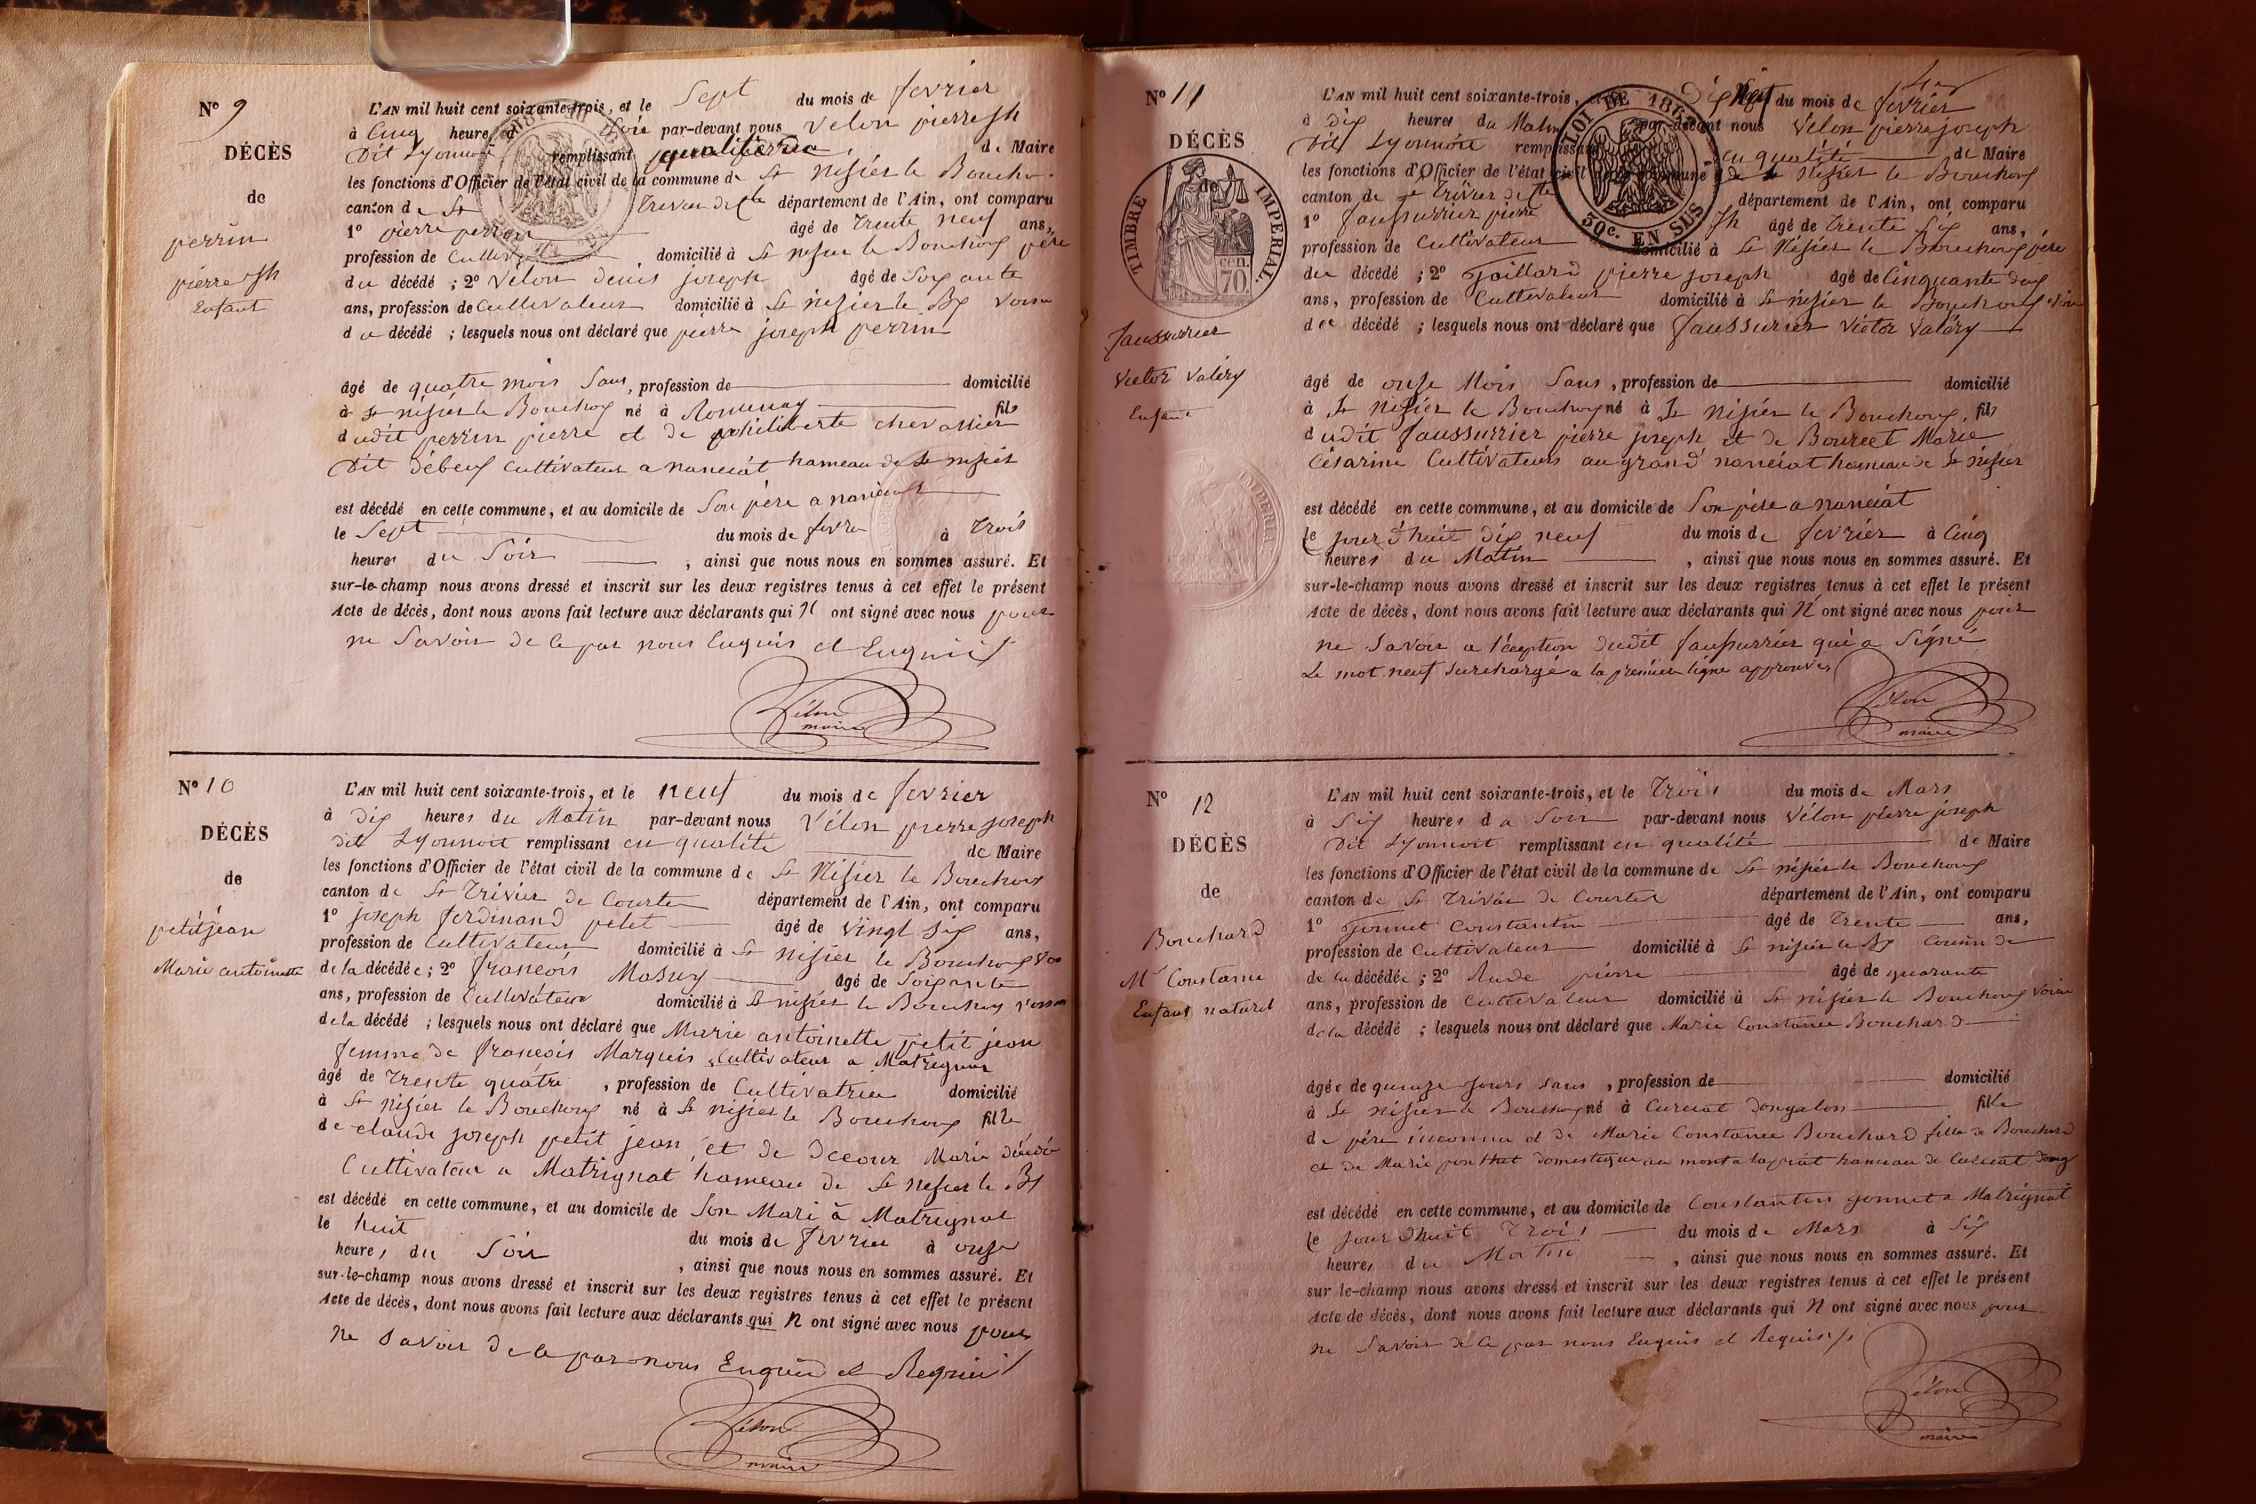 N° 9
DÉCÈS
de
perrin
pierre jh
Enfant
L'AN mil huit cent soixante-trois, et le Sept du mois de fevrier
à Cinq heures d Soir par-devant nous Velon pierre jh
Dit Lyonnois remplissant de Maire
les fonctions d'Officier de l'état civil de la commune de St Nisier le Boucho
canton de St Trivier de Cte département de l'Ain, ont comparu
1° pierre perrin âgé de Trente neuf ans,
profession de Cultiv domicilié à St nisier le Bouchoux père
du décédé ; 2° Vélon denis joseph âgé de Soixante
ans, profession de Cultivateur domicilié à St nisier le Bx Voisin
du décédé ; lesquels nous ont déclaré que pierre joseph perrin
âgé de quatre mois Sans, profession de domicilié
à St nisier le Bouchoux né à Romenay fils
dudit perrin pierre et de philiberte chevallier
Dit débeuf Cultivateur a nanciat hameau de St nisier
est décédé en cette commune, et au domicile de Son père a nanciat
le Sept du mois de fevre à Trois
heures du Soir , ainsi que nous nous en sommes assuré. Et
sur-le-champ nous avons dressé et inscrit sur les deux registres tenus à cet effet le présent
Acte de décès, dont nous avons fait lecture aux déclarants qui N ont signé avec nous pour
ne Savoir de ce par nous Enquis et
Vélon
maire
N° 10
DÉCÈS
de
petitjean
Marie antoinette
L'AN mil huit cent soixante-trois, et le neuf du mois de fevrier
à dix heures du Matin par-devant nous Vélon pierre joseph
dit Lyonnois remplissant en qualité de Maire
les fonctions d'Officier de l'état civil de la commune de St Nisier le Bouchoux
canton de St Trivier de Courte département de l'Ain, ont comparu
1° joseph ferdinand petit âgé de Vingt Six ans,
profession de Cultivateur domicilié à St nisier le Bouchoux
de la décédée ; 2° françois Masuy âgé de Soixante
ans, profession de Cultivateur domicilié à St nisier le Bouchoux voisin
de la décédé ; lesquels nous ont déclaré que Marie antoinette petit jean
femme de françois Marquis Cultivateur a Matrignat
âgé de Trente quatre , profession de Cultivatrice domicilié
à St nisier le Bouchoux né à St nisier le Bouchoux fille
de claude joseph petit jean, et de Decour Marie
Cultivateur a Matrignat hameau de St nisier le Bx
est décédé en cette commune, et au domicile de Son Mari à Matrignat
le huit du mois de fevrier à onze
heures du Soir , ainsi que nous nous en sommes assuré. Et
sur-le-champ nous avons dressé et inscrit sur les deux registres tenus à cet effet le présent
Acte de décès, dont nous avons fait lecture aux déclarants qui N ont signé avec nous pour
ne Savoir de ce par nous Enquis et Requis
Vélon
maire
N° 11
DÉCÈS
de
TIMBRE IMPÉRIAL
70 cen
faussurrier
Victor Valéry
Enfant
LOI DE 18
30c. EN SUS
L'AN mil huit cent soixante-trois, et le Dix Neuf du mois de fevrier
à dix heures du Matin par-devant nous Vélon pierre joseph
Dit Lyonnois remplissant en qualité de Maire
les fonctions d'Officier de l'état civil de la commune de St nisier le Bouchoux
canton de St Trivier de Cte département de l'Ain, ont comparu
1° faussurrier pierre jh âgé de Trente Six ans,
profession de Cultivateur domicilié à St Nisier le Bouchoux père
du décédé ; 2° Gaillard pierre joseph âgé de Cinquante deux
ans, profession de Cultivateur domicilié à St nisier le Bouchoux
du décédé ; lesquels nous ont déclaré que faussurier Victor Valéry
âgé de onze Mois Sans, profession de domicilié
à St Nisier le Bouchoux né à St Nisier le Bouchoux, fils
dudit faussurrier pierre joseph et de Bourcet Marie
Césarine Cultivateurs au grand nanciat hameau de St nisier
est décédé en cette commune, et au domicile de Son père a nanciat
le jourd'huit dix neuf du mois de fevrier à Cinq
heures du Matin , ainsi que nous nous en sommes assuré. Et
sur-le-champ nous avons dressé et inscrit sur les deux registres tenus à cet effet le présent
Acte de décès, dont nous avons fait lecture aux déclarants qui N ont signé avec nous pour
ne Savoir a l'éception dudit faussurrier qui a Signé
Le mot neuf Surchargé a la première ligne approuvés
Vélon
maire
N° 12
DÉCÈS
de
Bouchard
Me Constance
Enfant naturel
L'AN mil huit cent soixante-trois, et le Trois du mois de Mars
à Six heures du Soir par-devant nous Vélon pierre joseph
Dit Lyonnoit remplissant en qualité de Maire
les fonctions d'Officier de l'état civil de la commune de St nisier le Bouchoux
canton de St Trivier de Courtes département de l'Ain, ont comparu
1° Gonnet Constantin âgé de Trente ans,
profession de Cultivateur domicilié à St nisier le Bx Cousin de
de la décédée ; 2° Rude pierre âgé de quarante
ans, profession de Cultivateur domicilié à St nisier le Bouchoux Voisin
de la décédé ; lesquels nous ont déclaré que Marie Constance Bouchard
âgée de quinze Jours sans , profession de domicilié
à St nisier le Bouchoux né à Curciat Dongalon fille
de père inconnu et de Marie Constance Bouchard fille de Bouchard
et de Marie ponthut domestique au hameau de Curciat Dong
est décédé en cette commune, et au domicile de Constantin gonnet a Matrignat
le Jourdhuit Trois du mois de Mars à Six
heures du Matin , ainsi que nous nous en sommes assuré. Et
sur-le-champ nous avons dressé et inscrit sur les deux registres tenus à cet effet le présent
Acte de décès, dont nous avons fait lecture aux déclarants qui N ont signé avec nous pour
ne Savoir de ce par nous Enquis et Requis
Vélon
maire